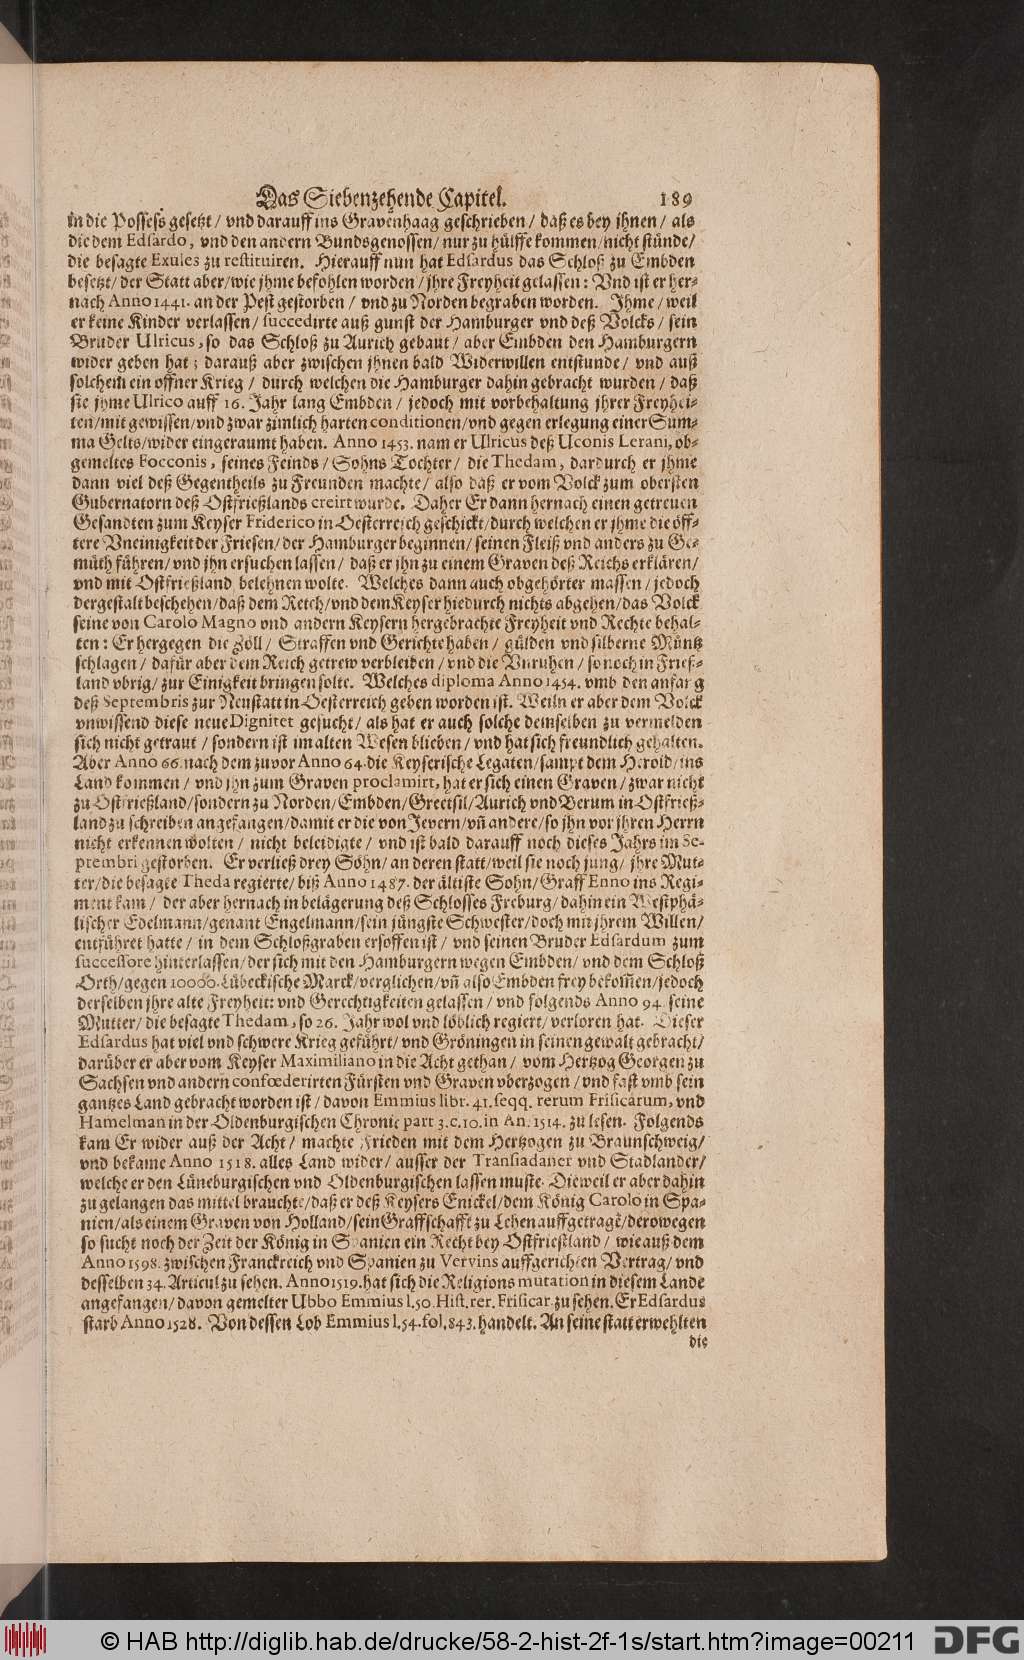 Das Siebenzehende Capitel. 189
in die Possess gesetzt / vnd darauff ins Gravenhaag geschrieben / daß es bey jhnen / als
die dem Edsardo, vnd den andern Bundsgenossen / nur zu hülffe kommen / nicht stünde /
die besagte Exules zu restituiren. Hierauff nun hat Edsardus das Schloß zu Embden
besetzt / der Statt aber / wie jhme befohlen worden / jhre Freyheit gelassen: Vnd ist er her-
nach Anno 1441. an der Pest gestorben / vnd zu Norden begraben worden. Jhme / weil
er keine Kinder verlassen / succedirte auß gunst der Hamburger vnd deß Volcks / sein
Bruder Ulricus, so das Schloß zu Aurich gebaut / aber Embden den Hamburgern
wider geben hat; darauß aber zwischen jhnen bald Widerwillen entstunde / vnd auß
solchem ein offner Krieg / durch welchen die Hamburger dahin gebracht wurden / daß
sie jhme Ulrico auff 16. Jahr lang Embden / jedoch mit vorbehaltung jhrer Freyhei-
ten / mit gewissen / vnd zwar zimlich harten conditionen / vnd gegen erlegung einer Sum-
ma Gelts / wider eingeraumt haben. Anno 1453. nam er Ulricus deß Uconis Lerani, ob-
gemeltes Focconis, seines Feinds / Sohns Tochter / die Thedam, dardurch er jhme
dann viel deß Gegentheils zu Freunden machte / also daß er vom Volck zum obersten
Gubernatorn deß Ostfrießlands creirt wurde. Daher Er dann hernach einen getreuen
Gesandten zum Keyser Friderico in Oesterreich geschickt / durch welchen er jhme die öff-
tere Vneinigkeit der Friesen / der Hamburger beginnen / seinen Fleiß vnd anders zu Ge-
müth führen / vnd jhn ersuchen lassen / daß er jhn zu einem Graven deß Reichs erklären /
vnd mit Ostfrießland belehnen wolte. Welches dann auch obgehörter massen / jedoch
dergestalt beschehen / daß dem Reich / vnd dem Keyser hiedurch nichts abgehen / das Volck
seine von Carolo Magno vnd andern Keysern hergebrachte Freyheit vnd Rechte behal-
ten: Er hergegen die Zöll / Straffen vnd Gerichte haben / gülden vnd silberne Müntz
schlagen / dafür aber dem Reich getrew verbleiben / vnd die Vnruhen / so noch in Frieß-
land vbrig / zur Einigkeit bringen solte. Welches diploma Anno 1454. vmb den anfang
deß Septembris zur Neustatt in Oesterreich geben worden ist. Weiln er aber dem Volck
vnwissend diese neue Dignitet gesucht / als hat er auch solche demselben zu vermelden
sich nicht getraut / sondern ist im alten Wesen blieben / vnd hat sich freundlich gehalten.
Aber Anno 66. nach dem zuvor Anno 64. die Keyserische Legaten / sampt dem Herold / ins
Land kommen / vnd jhn zum Graven proclamirt, hat er sich einen Graven / zwar nicht
zu Ostfrießland / sondern zu Norden / Embden / Greetsil / Aurich vnd Berum in Ostfrieß-
land zu schreiben angefangen / damit er die von Jevern / vñ andere / so jhn vor jhren Herrn
nicht erkennen wolten / nicht beleidigte / vnd ist bald darauff noch dieses Jahrs im Se-
ptembri gestorben. Er verließ drey Söhn / an deren statt / weil sie noch jung / jhre Mut-
ter / die besagte Theda regierte / biß Anno 1487. der ältiste Sohn / Graff Enno ins Regi-
ment kam / der aber hernach in belägerung deß Schlosses Freburg / dahin ein Westphä-
lischer Edelmann / genant Engelmann / sein jüngste Schwester / doch mit jhrem Willen /
entführet hatte / in dem Schloßgraben ersoffen ist / vnd seinen Bruder Edsardum zum
successore hinterlassen / der sich mit den Hamburgern wegen Embden / vnd dem Schloß
Orth / gegen 10000. Lübeckische Marck / verglichen / vñ also Embden frey bekom̃en / jedoch
derselben jhre alte Freyheit: vnd Gerechtigkeiten gelassen / vnd folgends Anno 94. seine
Mutter / die besagte Thedam, so 26. Jahr wol vnd löblich regiert / verloren hat. Dieser
Edsardus hat viel vnd schwere Krieg geführt / vnd Gröningen in seinen gewalt gebracht /
darüber er aber vom Keyser Maximiliano in die Acht gethan / vom Hertzog Georgen zu
Sachsen vnd andern confœderirten Fürsten vnd Graven vberzogen / vnd fast vmb sein
gantzes Land gebracht worden ist / davon Emmius libr. 41. seqq. rerum Frisicarum, vnd
Hamelman in der Oldenburgischen Chronic part 3. c. 10. in An. 1514. zu lesen. Folgends
kam Er wider auß der Acht / machte Frieden mit dem Hertzogen zu Braunschweig /
vnd bekame Anno 1518. alles Land wider / ausser der Transiadaner vnd Stadlander /
welche er den Lüneburgischen vnd Oldenburgischen lassen muste. Dieweil er aber dahin
zu gelangen das mittel brauchte / daß er deß Keysers Enickel / dem König Carolo in Spa-
nien / als einem Graven von Holland / sein Graffschafft zu Lehen auffgetragē / derowegen
so sucht noch der Zeit der König in Spanien ein Recht bey Ostfrießland / wie auß dem
Anno 1598. zwischen Franckreich vnd Spanien zu Vervins auffgerichten Vertrag / vnd
desselben 34. Articul zu sehen. Anno 1519. hat sich die Religions mutation in diesem Lande
angefangen / davon gemelter Ubbo Emmius l. 50. Hist. rer. Frisicar. zu sehen. Er Edsardus
starb Anno 1528. Von dessen Lob Emmius l. 54. fol. 843. handelt. An seine statt erwehlten
die
© HAB http://diglib.hab.de/drucke/58-2-hist-2f-1s/start.htm?image=00211 DFG